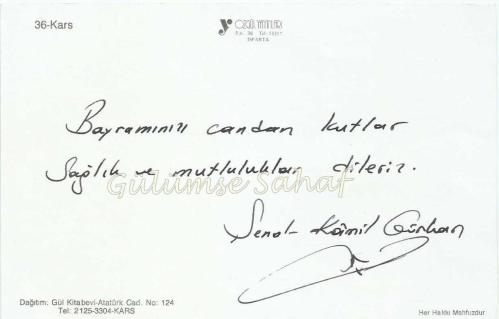 36-Kars
ÖZGÜL YAYINLARI
ISPARTA
Bayramınızı candan kutlar
Sağlık ve mutluluklar dileriz.
Gülümse Sahaf
Şenol- Kâmil Gürkan
Dağıtım: Gül Kitabevi-Atatürk Cad. No: 124
Tel: 2125-3304-KARS
Her Hakkı Mahfuzdur